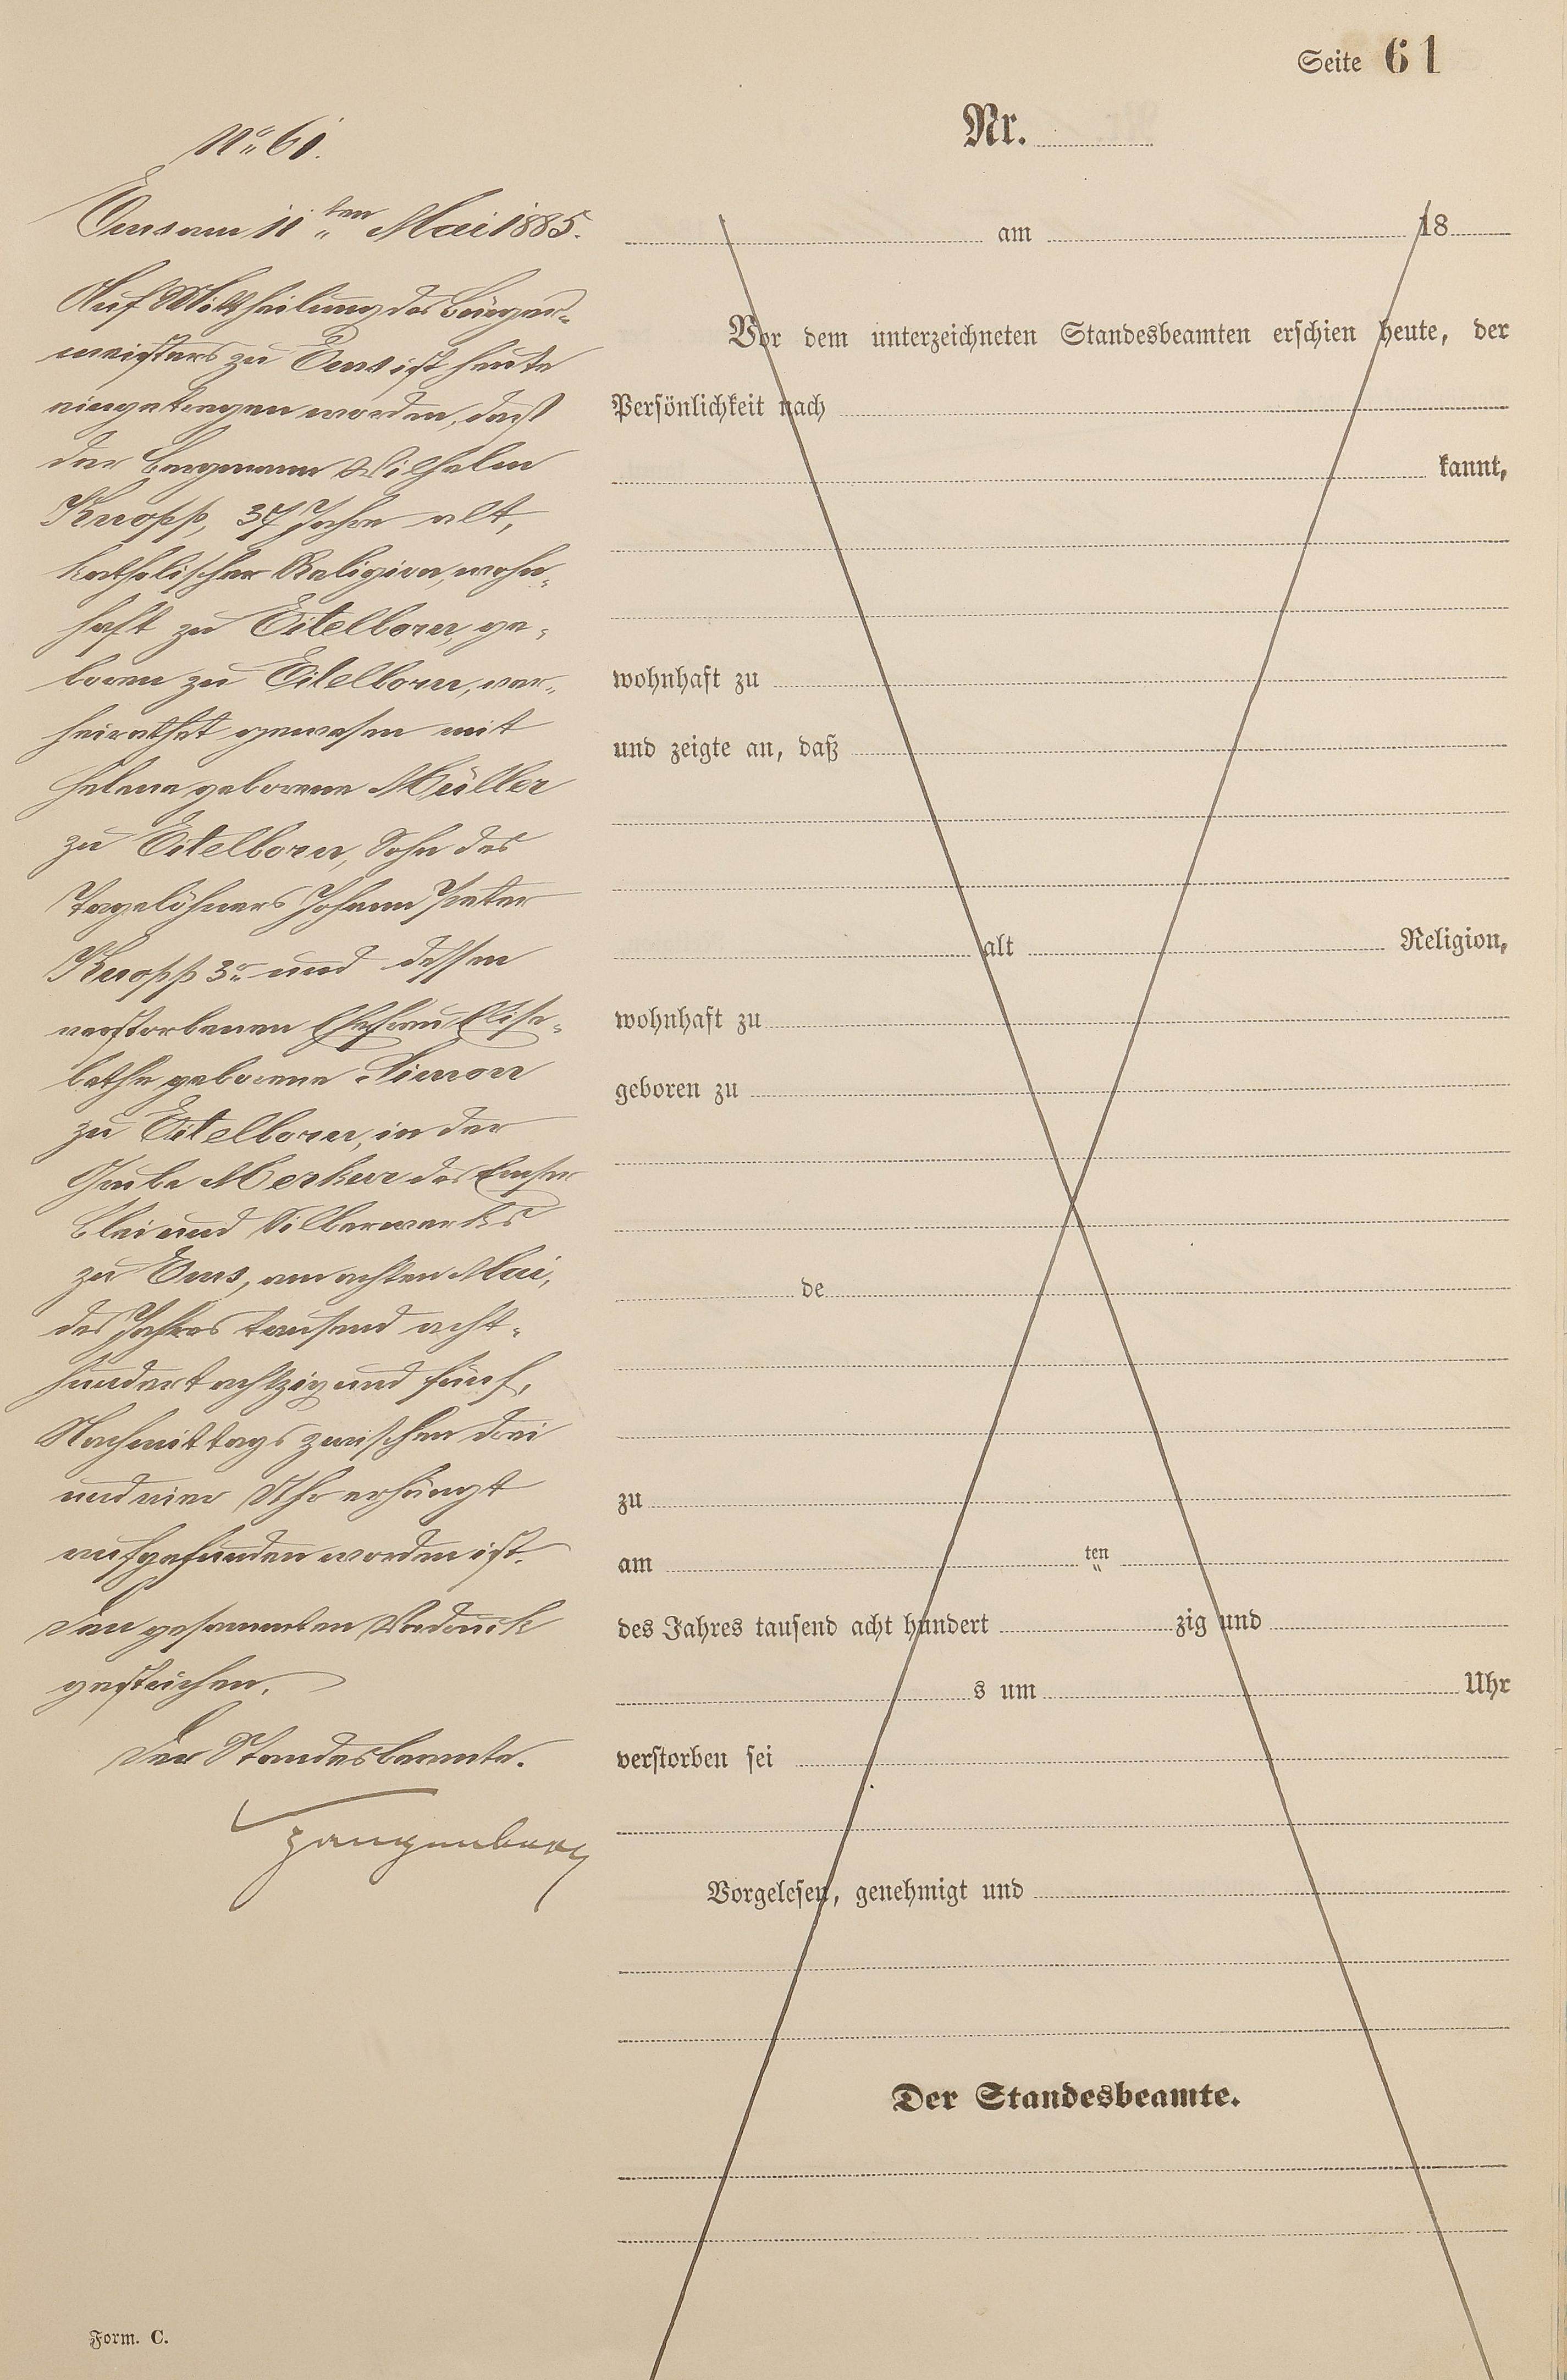 Seite 61
No 61.
Ems am 11ten Mai 1885.
Auf Mittheilung des Bürger-
meisters zu Ems ist heute
eingetragen worden, daß
der Bergmann Wilhelm
Knopp, 37 Jahre alt,
katholischer Religion, wohn-
haft zu Eitelborn, ge-
boren zu Eitelborn, ver-
heirathet gewesen mit
Helena geborene Müller
zu Eitelborn, Sohn des
Tagelöhners Johann Peter
Knopp 3r und dessen
verstorbenen Ehefrau Elisa-
betha geborene Simon
zu Eitelborn, in der
Grube Merkur des Emser
Blei und Silberwerks
zu Ems, am achten Mai,
des Jahres tausend acht-
hundert achtzig und fünf,
Nachmittags zwischen drei
und vier Uhr erhängt
aufgefunden worden ist.
Den gesammten Vordruck
gestrichen.
Der Standesbeamte.
Zangenberg
Nr.
am 18
Vor dem unterzeichneten Standesbeamten erschien heute, der
Persönlichkeit nach
kannt,
wohnhaft zu
und zeigte an, daß
alt Religion,
wohnhaft zu
geboren zu
de
zu
am ten
des Jahres tausend acht hundert zig und
s um Uhr
verstorben sei
Vorgelesen, genehmigt und
Der Standesbeamte.
Form. C.